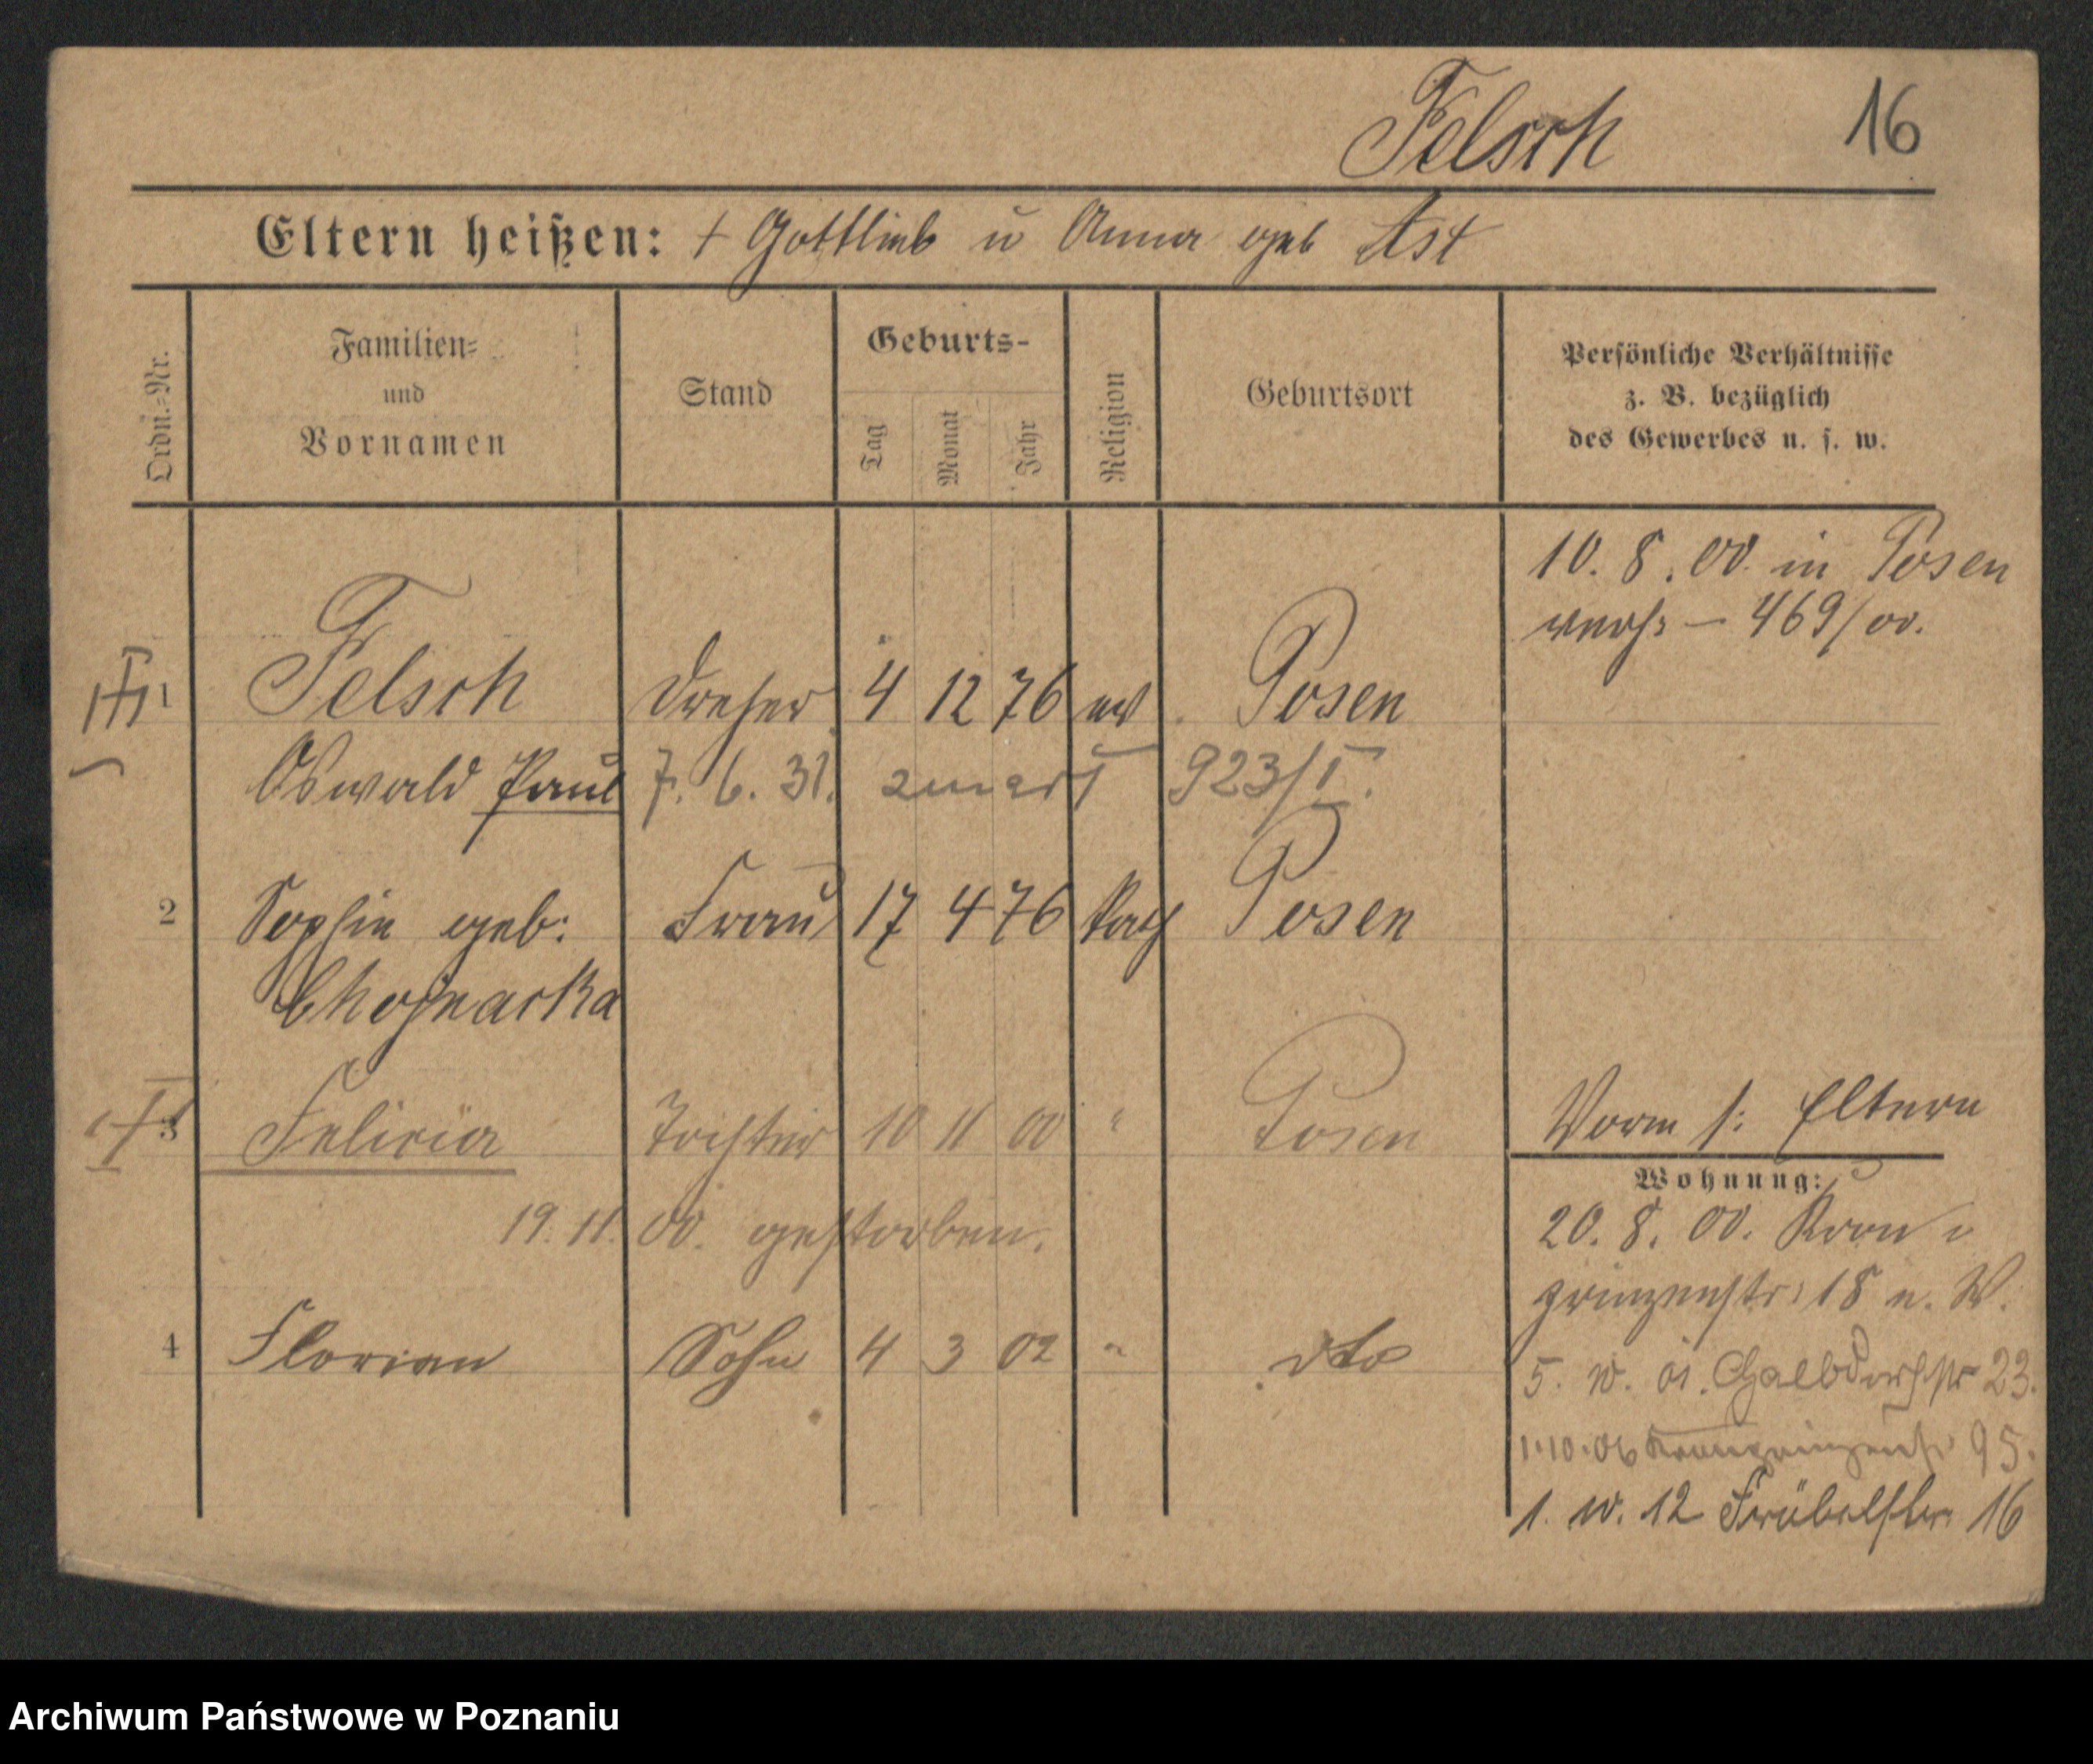 Felsch 16
Eltern heißen: + Gottlieb u Anna geb Ast
Ordn.=Nr.
Familien=
und
Vornamen
Stand
Geburts-
Tag
Monat
Jahr
Religion
Geburtsort
Persönliche Verhältnisse
z. B. bezüglich
des Gewerbes u. s. w.
10. 8. 00. in Posen
verh: — 469/00.
1 Felsch Dreher 4 12 76 ev Posen
Oswald Paul 7. 6. 31. zmarł 923/I.
2 Sophie geb: Frau 17 4 76 kath Posen
Chojnacka
3 Felicia Tochter 10 11 00 " Posen
Vorm s: Eltern
19. 11. 00. gestorben.
Wohnung:
20. 8. 00. Kron
prinzenstr 18 n. W.
4 Florian Sohn 4 3 02 " dto
5. 10. 01. 23.
1.10.06 Kronprinzenstr 95.
1. 10. 12 Fröbelstr. 16
Archiwum Państwowe w Poznaniu